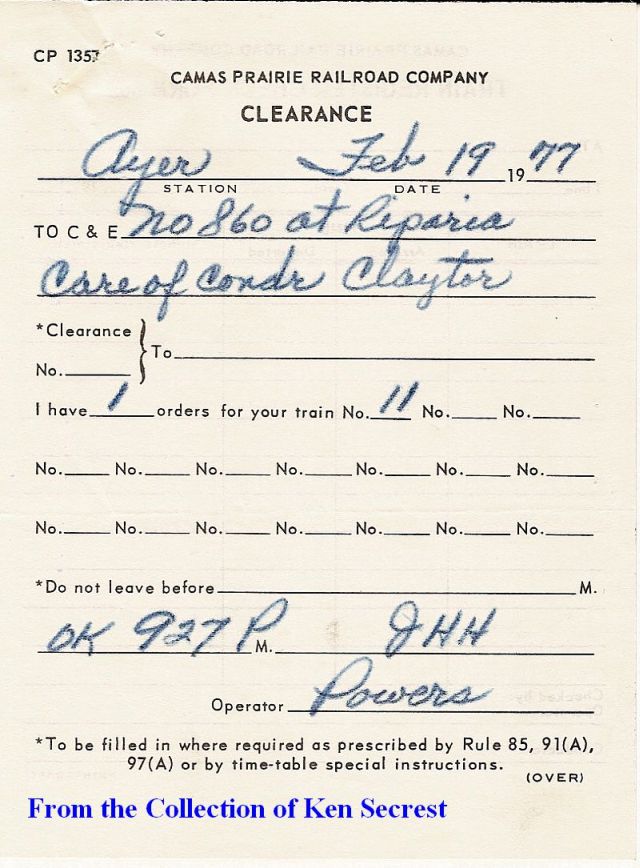 CP 1357
CAMAS PRAIRIE RAILROAD COMPANY
CLEARANCE
Ayer Feb 19 1977
STATION DATE
TO C & E No 860 at Riparia
Care of Condr Claytor
*Clearance
No.____ } To____
I have 1 orders for your train No. 11 No.____ No.____
No.____ No.____ No.____ No.____ No.____ No.____ No.____
No.____ No.____ No.____ No.____ No.____ No.____ No.____
*Do not leave before____M.
OK 927 P M. JHH
Operator Powers
*To be filled in where required as prescribed by Rule 85, 91(A),
97(A) or by time-table special instructions.
(OVER)
From the Collection of Ken Secrest